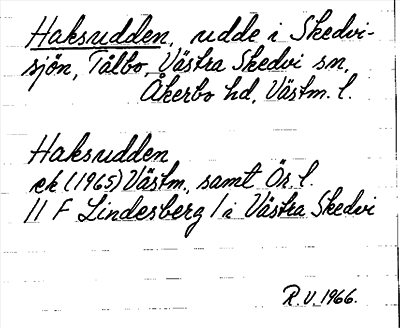 Haksudden, udde i Skedvi-
sjön, Tålbo, Västra Skedvi sn,
Åkerbo hd, Västm. l.
Haksudden
ek (1965) Västm., samt Ör. l.
11 F Lindesberg / i Västra Skedvi
R.V. 1966.